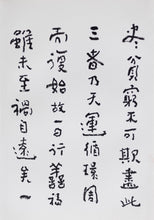 貧窮不可期盡此
三者乃天運循環周
而復始故一日行善福
雖未至禍自遠矣一